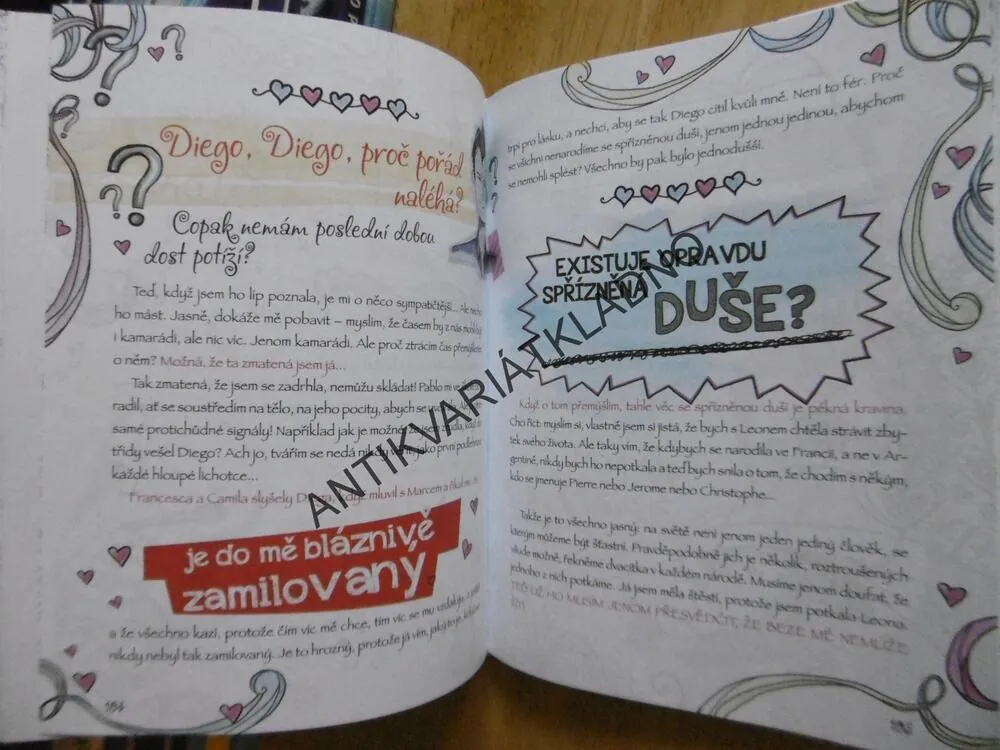 Diego, Diego, proč pořád
naléhá?
Copak nemám poslední dobou
dost potíží?
Teď, když jsem ho líp poznala, je mi o něco sympatičtější...
ho mást. Jasně, dokáže mě pobavit – myslím, že časem by z nás
i kamarádi, ale nic víc. Jenom kamarádi. Ale proč ztrácím čas
o něm? Možná, že ta zmatená jsem já...
Tak zmatená, že jsem se zadrhla, nemůžu skládat! Pablo mi
radil, ať se soustředím na tělo, na jeho pocity, abych
samé protichůdné signály! Například jak je možné, že
třídy vešel Diego? Ach jo, tvářím se nedá jako první
každé hloupé lichotce...
Francesca a Camila slyšely když mluvil s Marcem a
je do mě bláznivě
zamilovaný
a že všechno kazí, protože čím víc mě chce, tím víc se mu
nikdy nebyl tak zamilovaný. Je to hrozný, protože já vím, jaký to je,
184
trpí pro lásku, a nechci, aby se tak Diego cítil kvůli mně. Není to fér. Proč
se všichni nenarodíme se spřízněnou duší, jenom jednou jedinou, abychom
se nemohli splést? Všechno by pak bylo jednodušší.
EXISTUJE OPRAVDU
SPŘÍZNĚNÁ
DUŠE?
Když o tom přemýšlím, tahle věc se spřízněnou duší je pěkná kravina.
Chci říct: myslím si, vlastně jsem si jistá, že bych s Leonem chtěla strávit zby-
tek svého života. Ale taky vím, že kdybych se narodila ve Francii, a ne v Ar-
gentině, nikdy bych ho nepotkala a teď bych snila o tom, že chodím s někým,
kdo se jmenuje Pierre nebo Jerome nebo Christophe...
Takže je to všechno jasný: na světě není jenom jeden jediný člověk, se
kterým můžeme být šťastní. Pravděpodobně jich je několik, roztroušených
všude možně, řekněme dvacítka v každém národě. Musíme jenom doufat, že
jednoho z nich potkáme. Já jsem měla štěstí, protože jsem potkala Leona.
TEĎ UŽ HO MUSÍM JENOM PŘESVĚDČIT, ŽE BEZE MĚ NEMŮŽE
ŽÍT.
ANTIKVARIÁTKLADNO